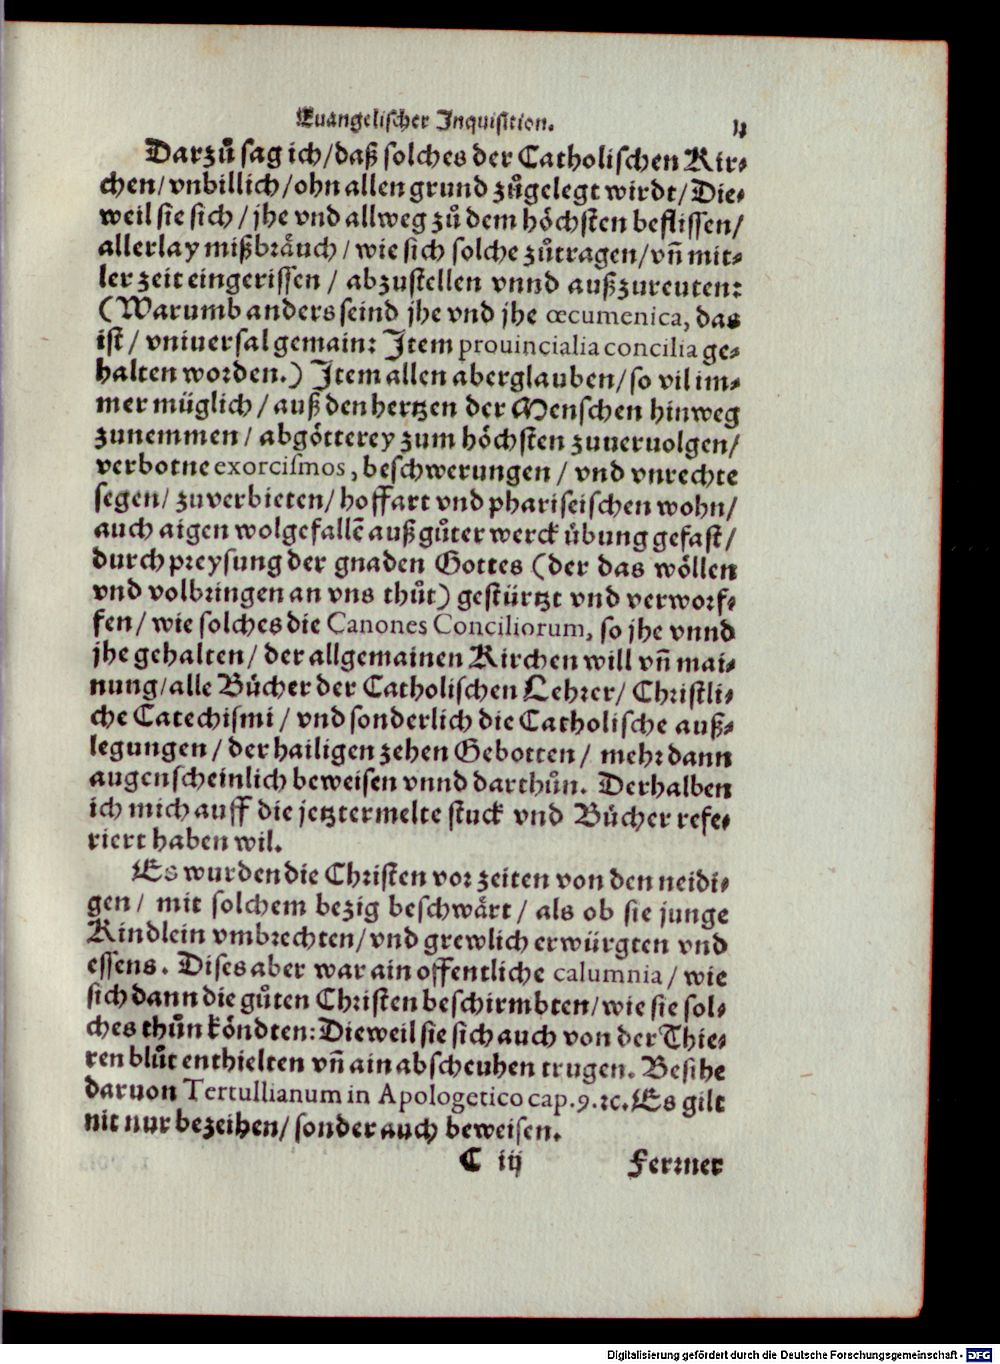 Euangelischer Inquisition. 11
Darzů sag ich/daß solches der Catholischen Kir-
chen/vnbillich/ohn allen grund zůgelegt wirdt/Die-
weil sie sich/jhe vnd allweg zů dem höchsten beflissen/
allerlay mißbräuch/wie sich solche zůtragen/vn̄ mit-
ler zeit eingerissen/ abzustellen vnnd außzureuten:
(Warumb anders seind jhe vnd jhe œcumenica, das
ist/ vniuersal gemain: Item prouincialia concilia ge-
halten worden.) Item allen aberglauben/so vil im-
mer müglich/auß den hertzen der Menschen hinweg
zunemmen/ abgötterey zum höchsten zuueruolgen/
verbotne exorcismos, beschwerungen/ vnd vnrechte
segen/ zuverbieten/hoffart vnd phariseischen wohn/
auch aigen wolgefallē auß gůter werck übung gefast/
durch preysung der gnaden Gottes (der das wöllen
vnd volbringen an vns thůt) gestürtzt vnd verworf-
fen/ wie solches die Canones Conciliorum, so jhe vnnd
jhe gehalten/ der allgemainen Kirchen will vn̄ mai-
nung/alle Bücher der Catholischen Lehrer/ Christli-
che Catechismi/ vnd sonderlich die Catholische auß-
legungen/ der hailigen zehen Gebotten/ mehr dann
augenscheinlich beweisen vnnd darthůn. Derhalben
ich mich auff die jetztermelte stuck vnd Bücher refe-
riert haben wil.
Es wurden die Christen vor zeiten von den neidi-
gen/ mit solchem bezig beschwärt/ als ob sie junge
Kindlein vmbrechten/vnd grewlich erwürgten vnd
essens. Dises aber war ain offentliche calumnia/ wie
sich dann die gůten Christen beschirmbten/wie sie sol-
ches thůn köndten: Dieweil sie sich auch von der Thie-
ren blůt enthielten vn̄ ain abscheuhen trugen. Besihe
daruon Tertullianum in Apologetico cap. 9. ꝛc. Es gilt
nit nur bezeihen/ sonder auch beweisen.
C iij Ferrner
Digitalisierung gefördert durch die Deutsche Forschungsgemeinschaft - DFG